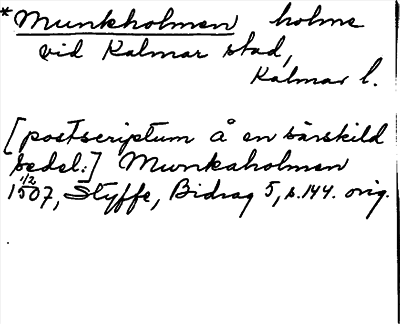 *Munkholmen holme
vid Kalmar stad,
Kalmar l.
[postscriptum å en särskild
sedel:] Munkaholmen
1/2 1507, Styffe, Bidrag 5, s. 144. orig.